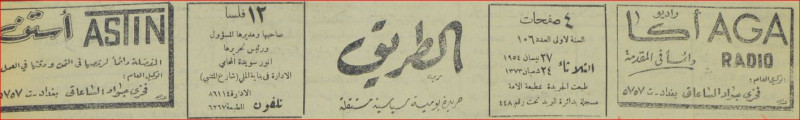 راديو
أكا AGA
دائماً في المقدمة RADIO
الوكيل العام:
فخري جواد الساعاتي بغداد ت ٥٧٥٧
٤ صفحات
السنة الاولى العدد ١٠٦
الثلاثاء ٢٧ نيسان ١٩٥٤
٢٤ شعبان ١٣٧٣
طبعت الجريدة بمطبعة الامة
مسجلة بدائرة البريد تحت رقم ٤٤٨
الطريق
جريدة يومية سياسية مستقلة
١٢ فلسا
صاحبها ومديرها المسؤول
ورئيس تحريرها
انور سويدة المحامي
الادارة في بناية الملي (شارع المتنبي)
الادارة ٨٦١١٤
تلفون المطبعة ٦٢٦٧
أستن ASTIN
المفضلة دائماً لرخصها في الثمن ودقتها في العمل
الوكيل العام:
فخري جواد الساعاتي بغداد ت ٥٧٥٧